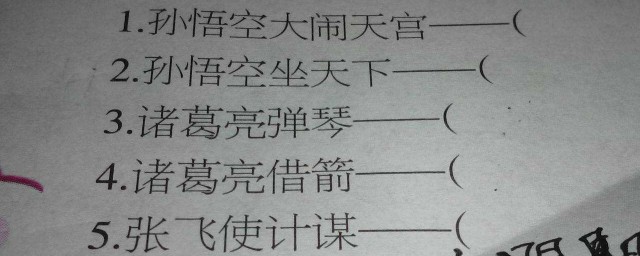 1.孙悟空大闹天宫——(
2.孙悟空坐天下——(
3.诸葛亮弹琴——(
4.诸葛亮借箭——(
5.张飞使计谋——(